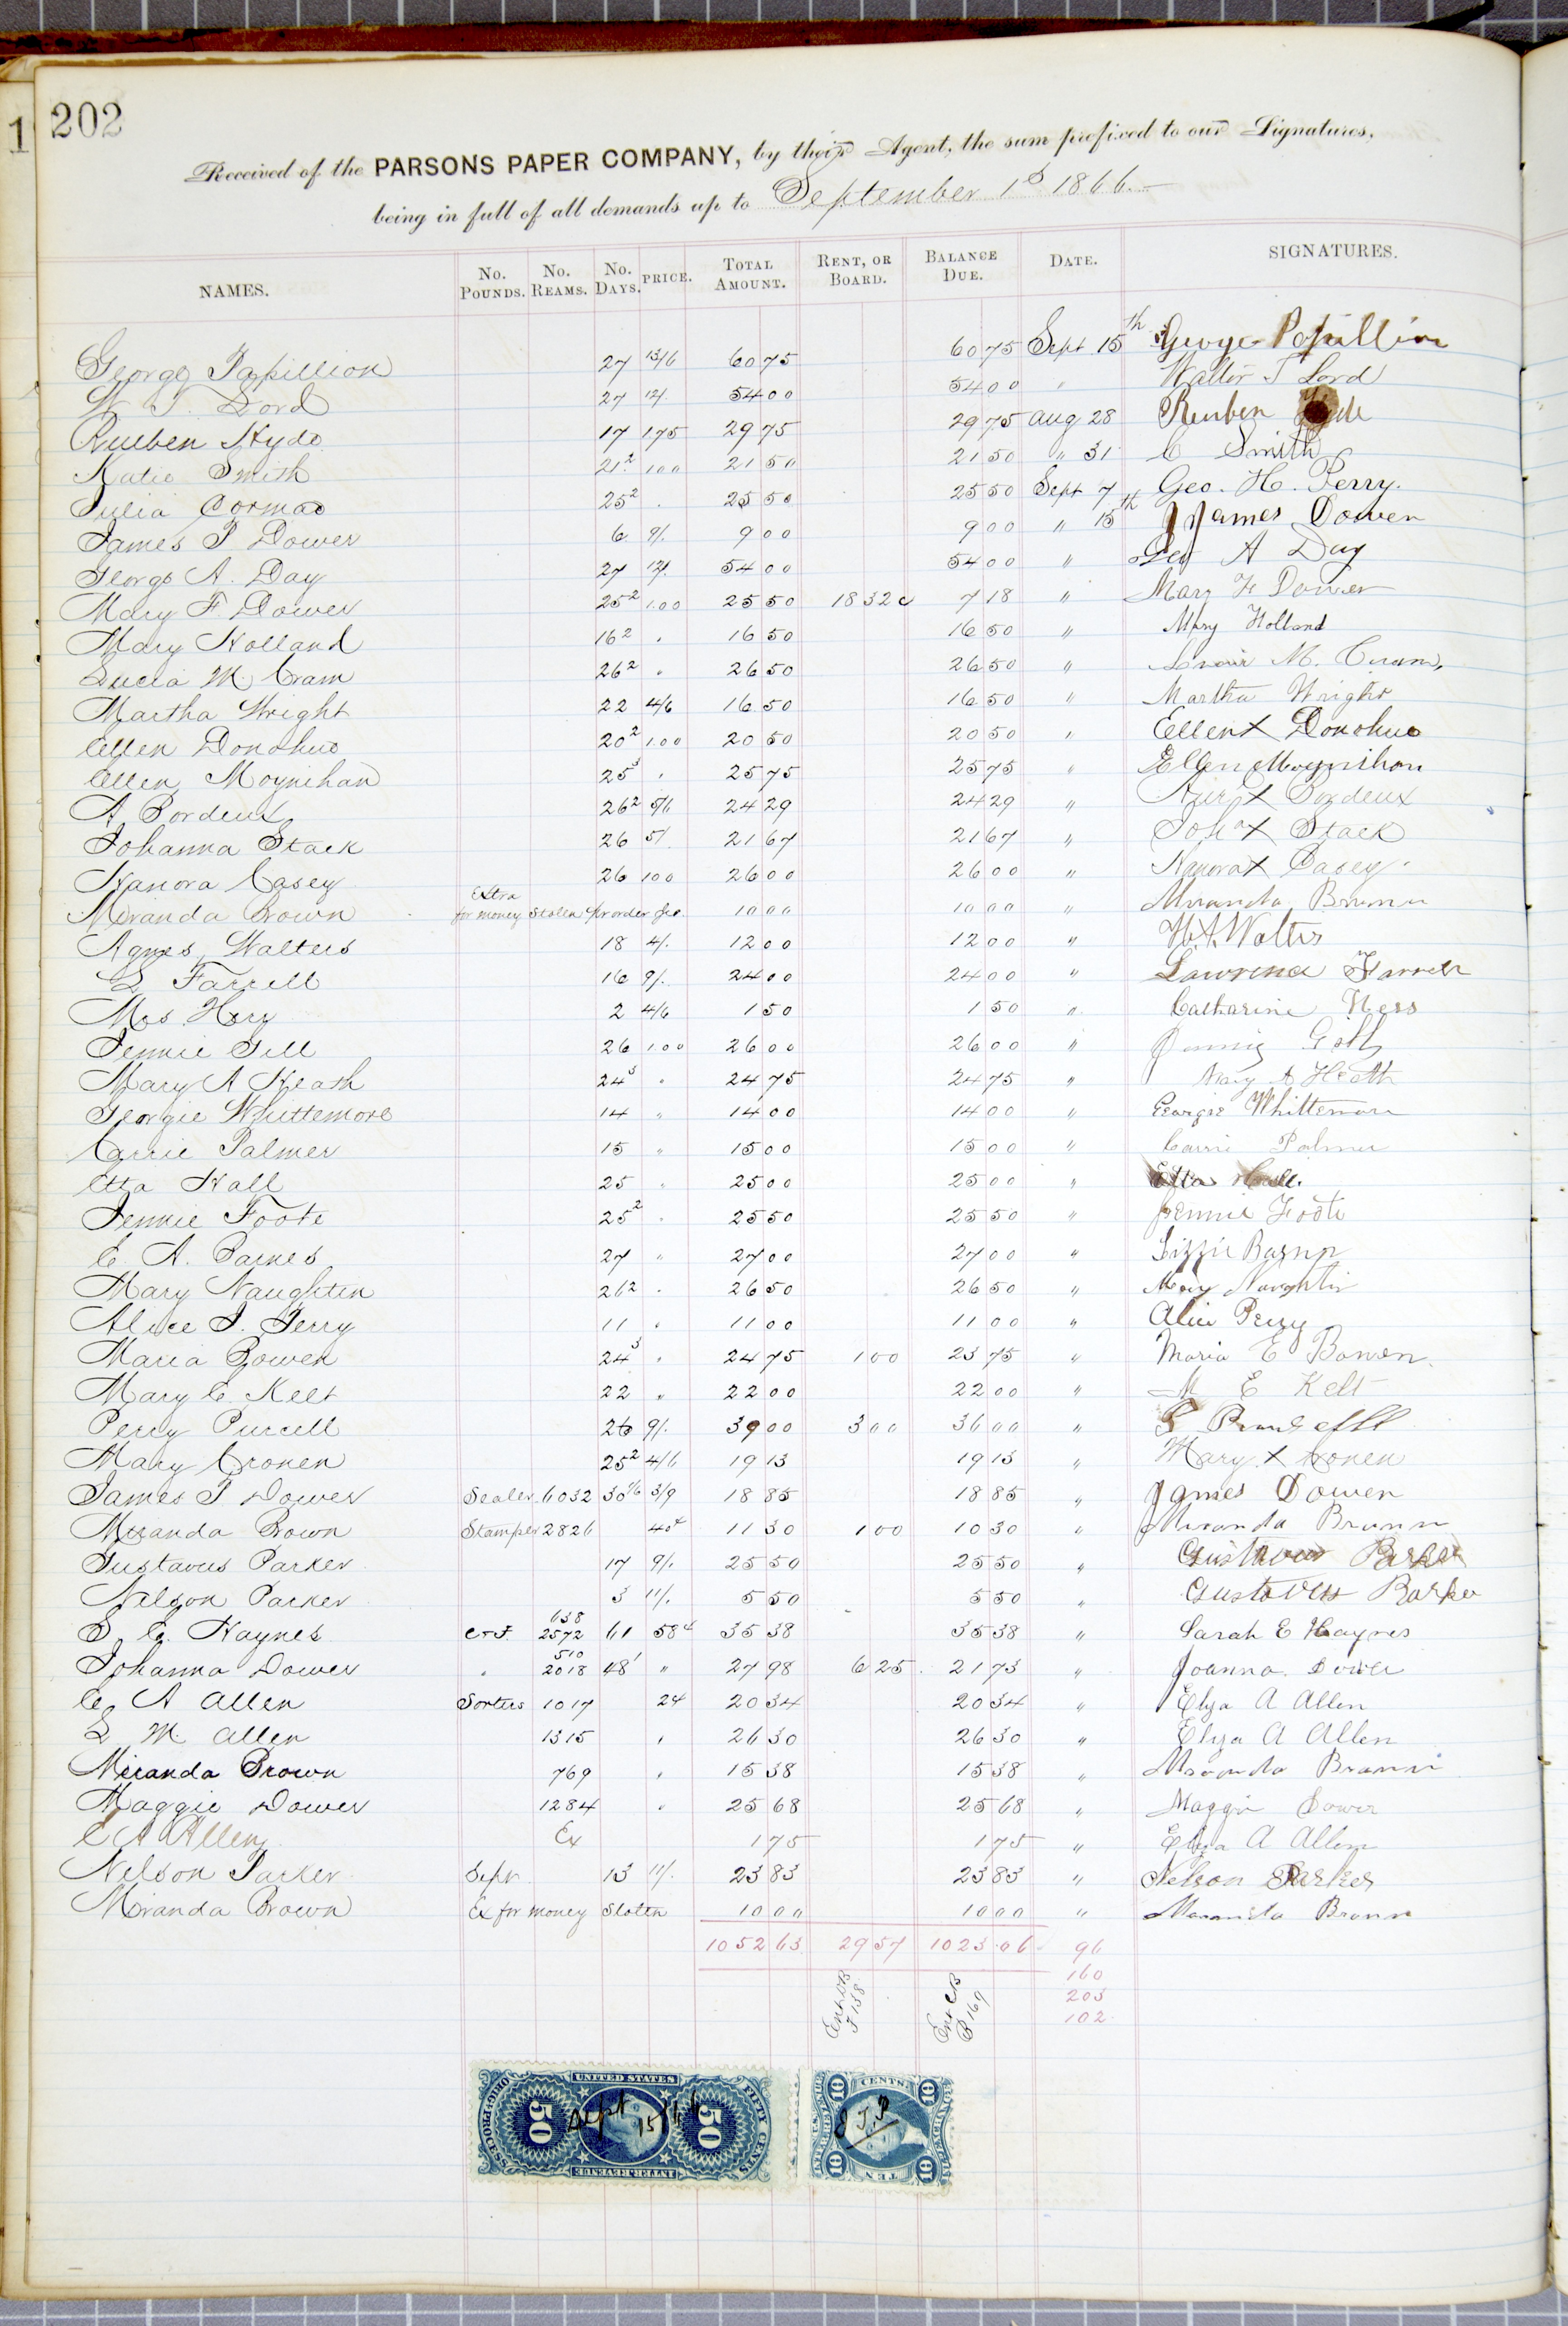 202
Received of the PARSONS PAPER COMPANY, by their Agent, the sum prefixed to our Signatures,
being in full of all demands up to September 1st 1866.
NAMES. No. POUNDS. No. REAMS. No. DAYS. PRICE. TOTAL AMOUNT. RENT, OR BOARD. BALANCE DUE. DATE. SIGNATURES.
George Papillion 27 13/6 60 75 60 75 Sept 15th George Papillion
W. T. Lord 27 12/. 54 00 54 00 " Walter T Lord
Rueben Hyde 17 1.75 29 75 29 75 Aug 28 Reuben
Katie Smith 21 2 1 00 21 50 21 50 " 31 C Smith
Julia Cormac 25 2 . 25 50 25 50 Sept 7 Geo. H. Perry.
James T Dower 6 9/. 9 00 9 00 " 15th James Dower
George A. Day 27 12/. 54 00 54 00 " Geo A Day
Mary F. Dower 25 2 1.00 25 50 18 32 7 18 " Mary F Dower
Mary Holland 16 2 . 16 50 16 50 " Mary Holland
Lucia M. Cram 26 2 . 26 50 26 50 " M. Cram,
Martha Wright 22 4/6 16 50 16 50 " Martha Wright
Ellen Donohue 20 2 1.00 20 50 20 50 " Ellen X Donohue
Ellen Moynihan 25 3 . 25 75 25 75 " Ellen Moynihan
A. Bordeux 26 2 5/6 24 29 24 29 " X Bordeux
Johanna Stack 26 5/. 21 67 21 67 " Joha X Stack
Hanora Casey 26 1 00 26 00 26 00 " Hanora X Casey
Miranda Brown Extra for money stolen pr order 10 00 10 00 " Miranda Brown
Agnes Walters 18 4/. 12 00 12 00 " Walters
L Farrell 16 9/. 24 00 24 00 " Lawrence Farrell
Mrs. 2 4/6 1 50 1 50 " Catharine
Jennie Gill 26 1.00 26 00 26 00 " Gill
Mary A Heath 24 3 " 24 75 24 75 " Mary A Heath
Georgie Whittemore 14 " 14 00 14 00 " Georgie Whittemore
Carrie Palmer 15 " 15 00 15 00 " Carrie Palmer
Etta Hall 25 . 25 00 25 00 " Etta Hall.
Jennie Foote 25 2 . 25 50 25 50 " Jennie Foote
E. A. Barnes 27 " 27 00 27 00 " Lizzie Barnes
Mary Naughten 26 2 . 26 50 26 50 " Mary Naughtin
Alice J. Perry 11 . 11 00 11 00 " Alice Perry
Maria Bowen 24 3 . 24 75 1 00 23 75 " Maria E Bowen.
Mary E. Kelt 22 " 22 00 22 00 " M E Kelt
Percy Purcell 26 9/. 39 00 3 00 36 00 " P
Mary Cronen 25 2 4/6 19 13 19 13 " Mary X Cronen
James T Dower Sealer 6032 30 1/6 3/9 18 85 18 85 " James Dower
Miranda Brown Stamper 2826 40c 11 30 1 00 10 30 " Miranda Brown
Gustavus Parker 17 9/. 25 50 25 50 " Gustavus Parker
Nelson Parker 3 11/. 5 50 5 50 " Gustavus Parker
S. E. Haynes C & F. 638 2572 61 58c 35 38 35 38 " Sarah E Haynes
Johanna Dower " 510 2018 48 1 " 27 98 6 25 21 73 " Joanna Dower
E A Allen Sorters 1017 2c 20 34 20 34 " Elza A Allen
L M. Allen 1315 " 26 30 26 30 " Elza A Allen
Miranda Brown 769 " 15 38 15 38 " Miranda Brown
Maggie Dower 1284 " 25 68 25 68 " Maggie Dower
E A Allen Ex 1 75 1 75 " Elza A Allen
Nelson Parker Supr. 13 11/. 23 83 23 83 " Nelson Parker
Miranda Brown Ex for money stolen 10 00 10 00 " Miranda Brown
1052 63 29 57 1023.06 96
160
203
102
Ent DB F 138
Ent CB P 169
UNITED STATES
ORIG. PROCESS
FIFTY CENTS
50 50
INTER. REVENUE
Sept 15/66
CENTS.
10 10
U.S. INTER. REVENUE
J.P
10 10
TEN